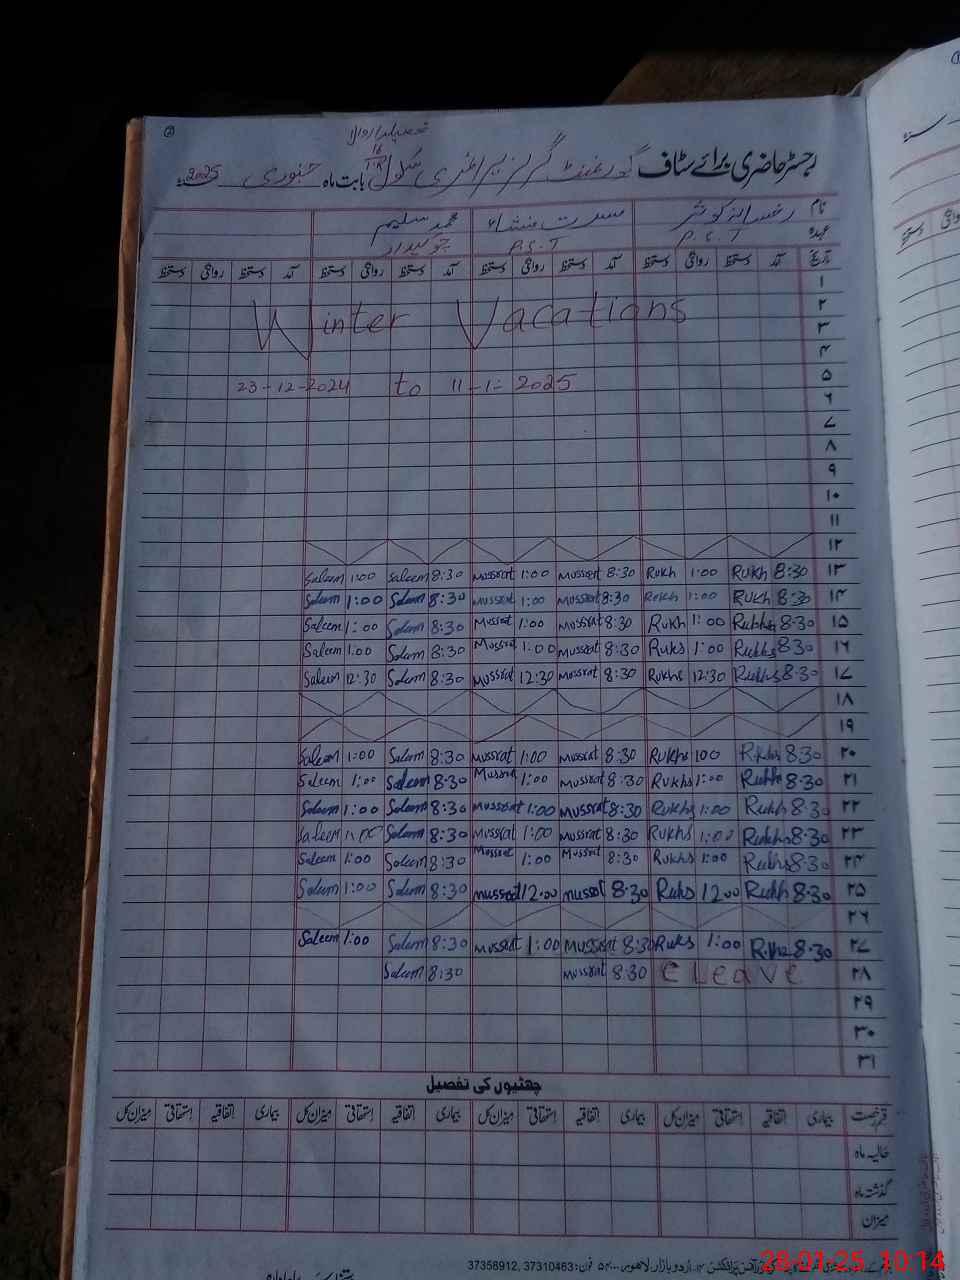 رجسٹر حاضری برائے سٹاف گورنمنٹ گرلز پرائمری سکول 16 T.R بابت ماہ جنوری 2025
نام رخسانہ کوثر مسرت منشاء محمد سلیم
عہدہ P.S.T P.S.T چوکیدار
تاریخ آمد دستخط روانگی دستخط آمد دستخط روانگی دستخط آمد دستخط روانگی دستخط آمد دستخط روانگی دستخط
۱
۲
Winter Vacations
۳
۴
۵
23-12-2024 to 11-1-2025
۶
۷
۸
۹
۱۰
۱۱
۱۲
Saleem 1:00 Saleem 8:30 Mussrat 1:00 Mussrat 8:30 Rukh 1:00 Rukh 8:30 ۱۳
Saleem 1:00 Saleem 8:30 Mussrat 1:00 Mussrat 8:30 Rukh 1:00 Rukh 8:30 ۱۴
Saleem 1:00 Saleem 8:30 Mussrat 1:00 Mussrat 8:30 Rukh 1:00 Rukhs 8:30 ۱۵
Saleem 1:00 Saleem 8:30 Mussrat 1:00 Mussrat 8:30 Ruks 1:00 Rukhs 8:30 ۱۶
Saleem 12:30 Saleem 8:30 Mussrat 12:30 Mussrat 8:30 Rukhs 12:30 Rukhs 8:30 ۱۷
۱۸
۱۹
Saleem 1:00 Saleem 8:30 Mussrat 1:00 Mussrat 8:30 Rukhs 100 Rukhs 8:30 ۲۰
Saleem 1:00 Saleem 8:30 Mussrat 1:00 Mussrat 8:30 Rukhs 1:00 Rukhs 8:30 ۲۱
Saleem 1:00 Saleem 8:30 Mussrat 1:00 Mussrat 8:30 Rukhs 1:00 Rukh 8:30 ۲۲
Saleem Saleem 8:30 Mussrat 1:00 Mussrat 8:30 Rukhs 1:00 Rukhs 8:30 ۲۳
Saleem 1:00 Saleem 8:30 Mussrat 1:00 Mussrat 8:30 Rukhs 1:00 Rukhs 8:30 ۲۴
Saleem 1:00 Saleem 8:30 Mussrat 12:00 Mussrat 8:30 Ruks 12:00 Rukh 8:30 ۲۵
۲۶
Saleem 1:00 Saleem 8:30 Mussrat 1:00 Mussrat 8:30 Ruks 1:00 8:30 ۲۷
Saleem 8:30 Mussrat 8:30 C Leave ۲۸
۲۹
۳۰
۳۱
چھٹیوں کی تفصیل
قسم رخصت بیماری اتفاقیہ استحقاقی میزان کل بیماری اتفاقیہ استحقاقی میزان کل بیماری اتفاقیہ استحقاقی میزان کل بیماری اتفاقیہ استحقاقی میزان کل
حالیہ ماہ
گذشتہ ماہ
میزان
اردو بازار، لاہور فون: 37310463, 37358912
28-01-25 10:14